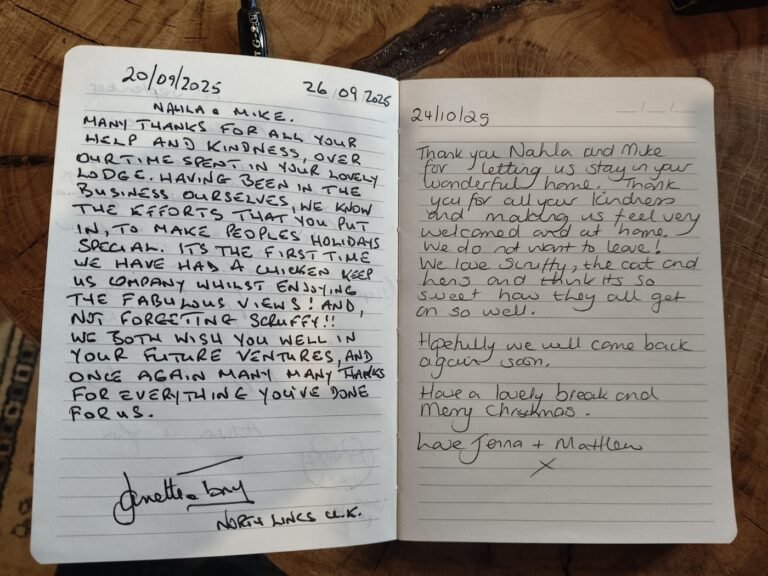 20/09/2025 26 09 2025
NAHLA & MIKE.
MANY THANKS FOR ALL YOUR
HELP AND KINDNESS, OVER
OUR TIME SPENT IN YOUR LOVELY
LODGE. HAVING BEEN IN THE
BUSINESS OURSELVES, WE KNOW
THE EFFORTS THAT YOU PUT
IN, TO MAKE PEOPLES HOLIDAYS
SPECIAL. ITS THE FIRST TIME
WE HAVE HAD A CHICKEN KEEP
US COMPANY WHILST ENJOYING
THE FABULOUS VIEWS! AND,
NOT FORGETING SCRUFFY!!
WE BOTH WISH YOU WELL IN
YOUR FUTURE VENTURES, AND
ONCE AGAIN MANY MANY THANKS
FOR EVERYTHING YOU'VE DONE
FOR US.
Janette & Tony
NORTH LINCS U.K.
24/10/25
Thank you Nahla and Mike
for letting us stay in your
wonderful home. Thank
you for all your kindness
and making us feel very
welcomed and at home.
We do not want to leave!
We love Scruffy, the cat and
hens and think its so
sweet how they all get
on so well.
Hopefully we will come back
again soon.
Have a lovely break and
Merry Christmas.
Love Jenna + Matthew
X